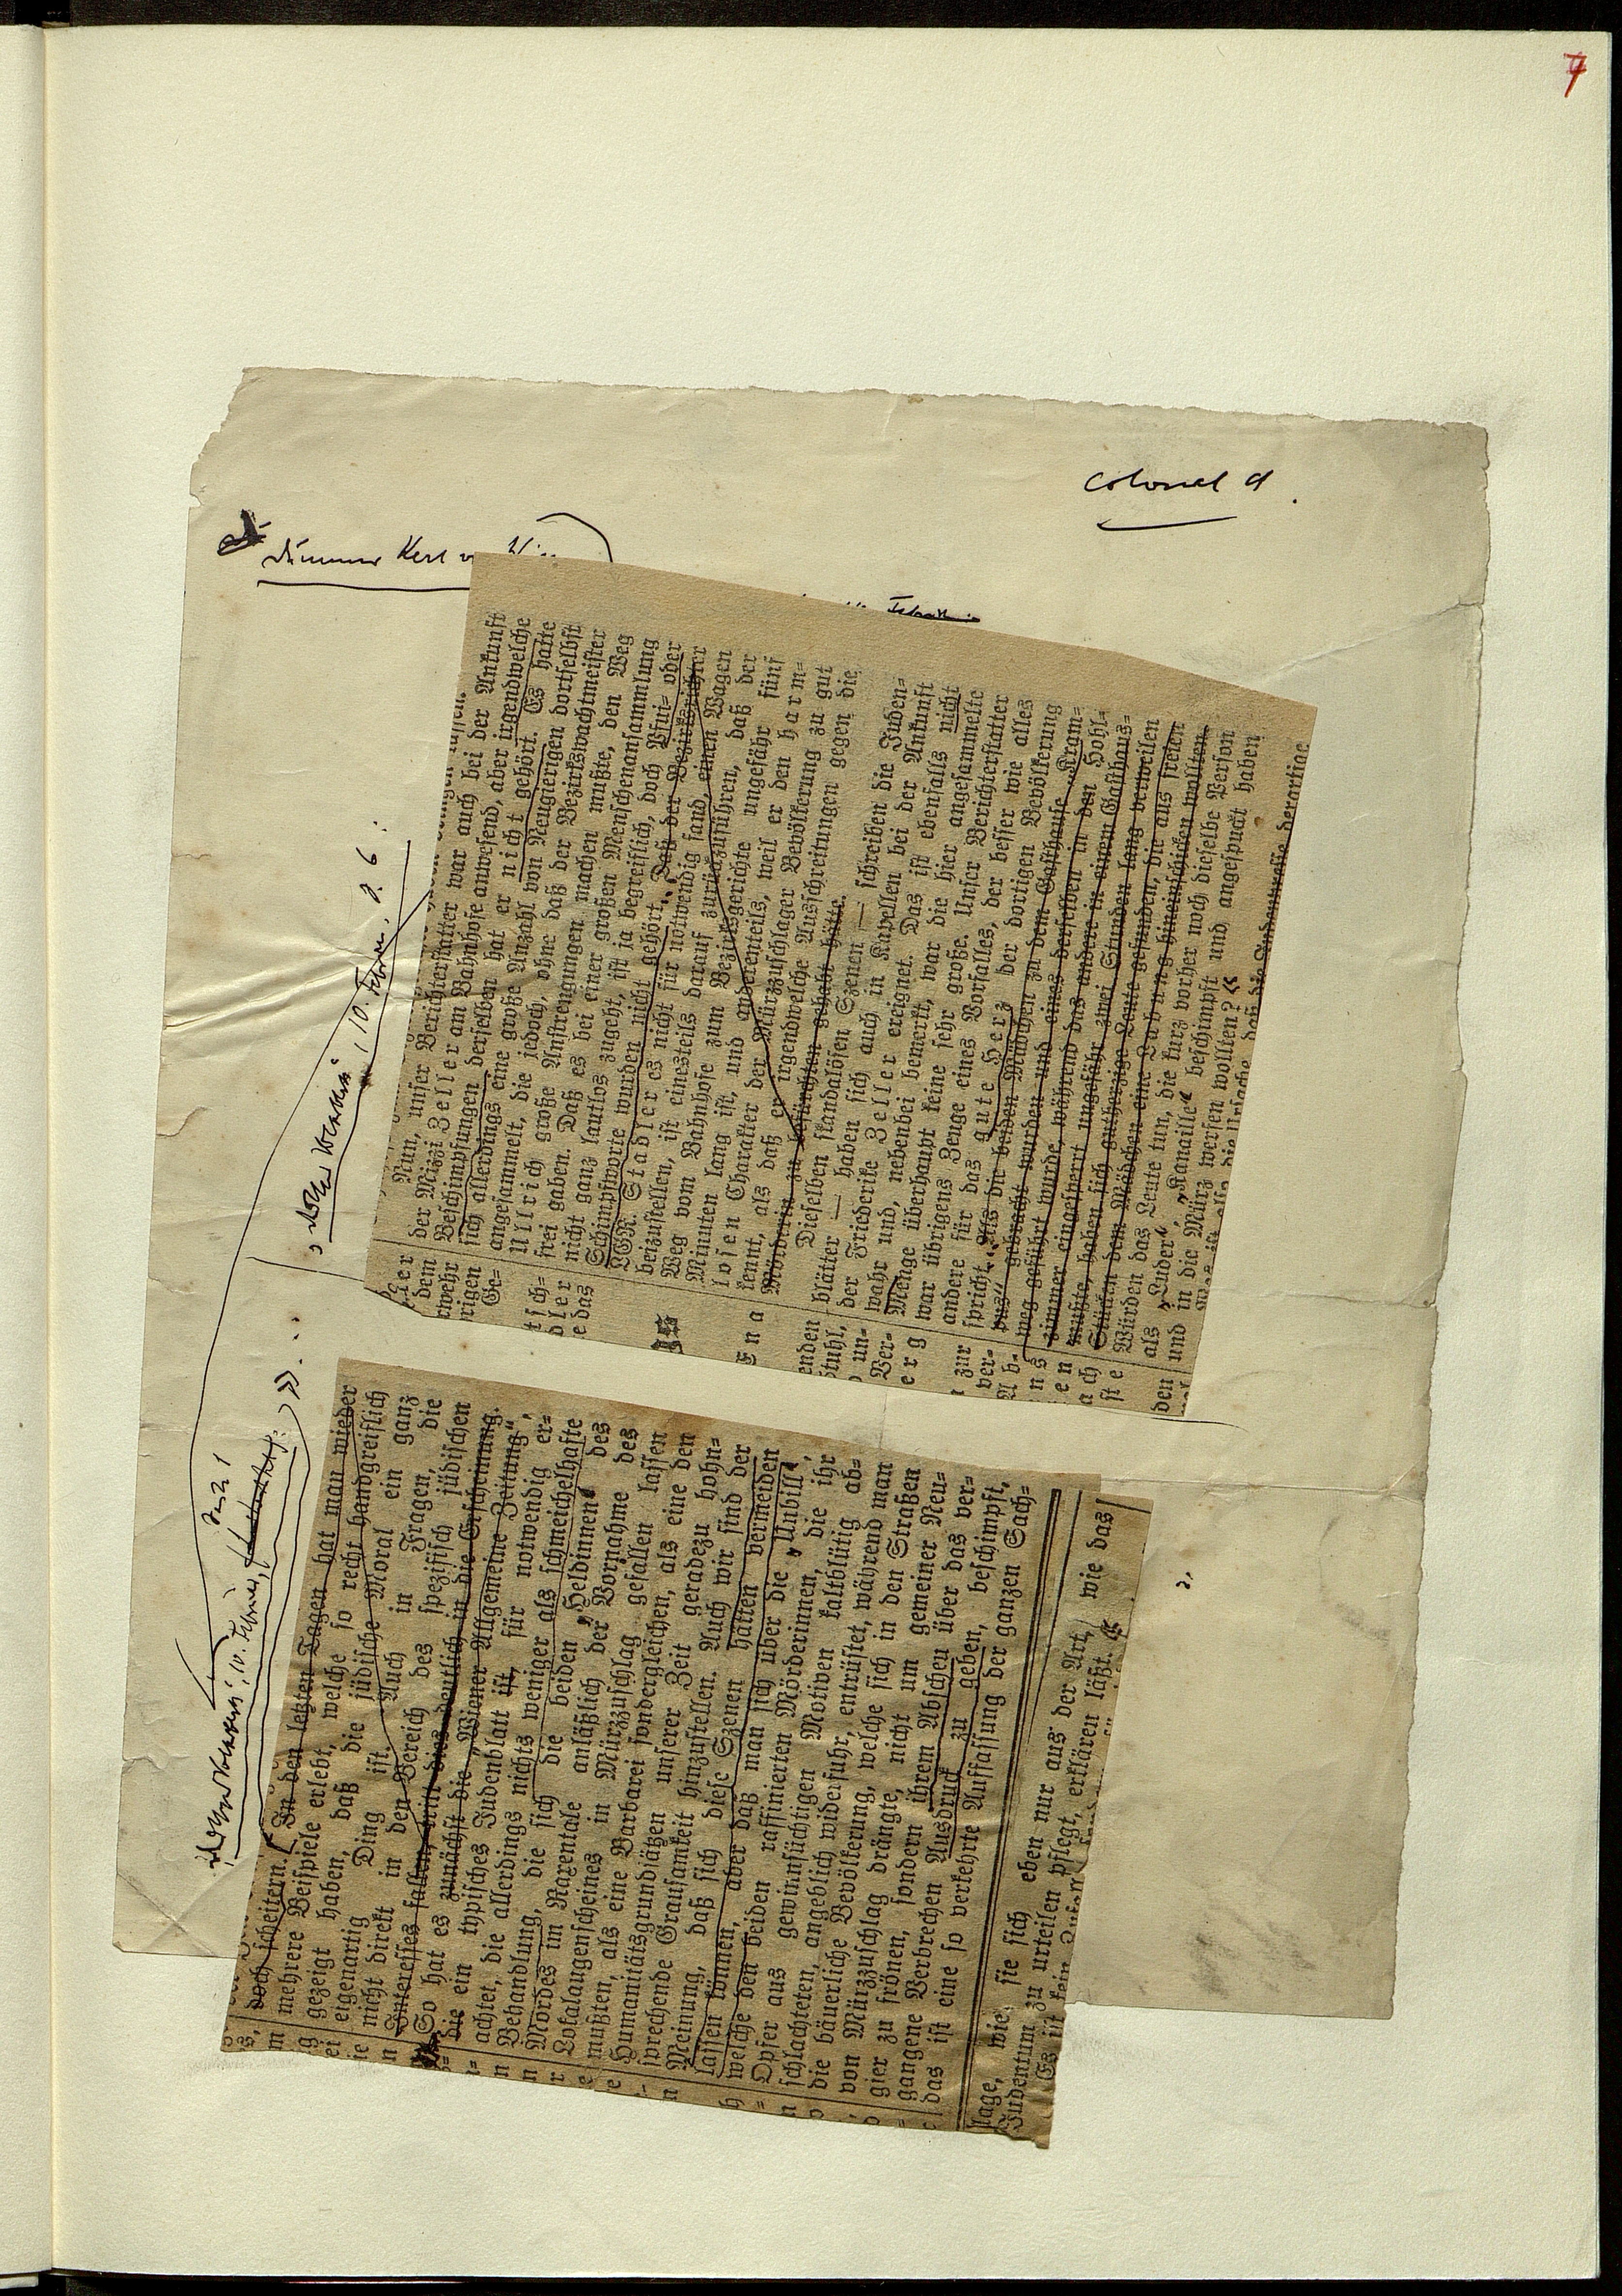 7
colonel d.
Dummer Kerl v
»Ostdeutsche Rundschau, 10. Febru. S. 6:
Nun, unser Berichterstatter war auch bei der Ankunft
der Mizzi Zeller am Bahnhofe anwesend, aber irgendwelche
Beschimpfungen derselben hat er nicht gehört. Es hatte
sich allerdings eine große Anzahl von Neugierigen dortselbst
angesammelt, die jedoch, ohne daß der Bezirkswachtmeister
Ullrich große Anstrengungen machen mußte, den Weg
frei gaben. Daß es bei einer großen Menschenansammlung
nicht ganz lautlos zugeht, ist ja begreiflich, doch Pfui- oder
Schimpfworte wurden nicht gehört. Daß der Bezirksrichter
LGR. Stadler es nicht für notwendig fand, einen Wagen
beizustellen, ist einesteils darauf zurückzuführen, daß der
Weg vom Bahnhofe zum Bezirksgerichte ungefähr fünf
Minuten lang ist, und anderenteils, weil er den harm-
losen Charakter der Mürzzuschlager Bevölkerung zu gut
kennt, als daß er irgendwelche Ausschreitungen gegen die
Mörderin zu befürchten gehabt hätte.
Dieselben skandalösen Szenen — schreiben die Juden-
blätter — haben sich auch in Kapellen bei der Ankunft
der Friederike Zeller ereignet. Das ist ebenfalls nicht
wahr und, nebenbei bemerkt, war die hier angesammelte
Menge überhaupt keine sehr große. Unser Berichterstatter
war übrigens Zeuge eines Vorfalles, der besser wie alles
andere für das gute Herz der dortigen Bevölkerung
spricht. Als die beiden Mädchen zu dem Gasthause „Kram-
pus“ gebracht wurden und eines derselben in den Hohl-
weg geführt wurde, während das andere in einem Gasthaus-
zimmer eingesperrt ungefähr zwei Stunden lang verweilen
mußte, haben sich gutherzige Leute gefunden, die aus freien
Stücken dem Mädchen eine Labung hineinschicken wollten.
Würden das Leute tun, die kurz vorher noch dieselbe Person
als „Luder“, „Kanaille“ beschimpft und angespuckt haben
und in die Mürz werfen wollten?«
doch scheitern. In den letzten Tagen hat man wieder
mehrere Beispiele erlebt, welche so recht handgreiflich
gezeigt haben, daß die jüdische Moral ein ganz
eigenartig Ding ist. Auch in Fragen, die
nicht direkt in den Bereich des spezifisch jüdischen
Interesses fallen, tritt dies deutlich in die Erscheinung.
So hat es zunächst die „Wiener Allgemeine Zeitung“,
die ein typisches Judenblatt ist, für notwendig er-
achtet, die allerdings nichts weniger als schmeichelhafte
Behandlung, die sich die beiden „Heldinnen“ des
Mordes im Raxentale anläßlich der Vornahme des
Lokalaugenscheines in Mürzzuschlag gefallen lassen
mußten, als eine Barbarei sondergleichen, als eine den
Humanitätsgrundsätzen unserer Zeit geradezu hohn-
sprechende Grausamkeit hinzustellen. Auch wir sind der
Meinung, daß sich diese Szenen hätten vermeiden
lassen können, aber daß man sich über die „Unbill“,
welche den beiden raffinierten Mörderinnen, die ihr
Opfer aus gewinnsüchtigen Motiven kaltblütig ab-
schlachteten, angeblich widerfuhr, entrüstet, während man
die bäuerliche Bevölkerung, welche sich in den Straßen
von Mürzzuschlag drängte, nicht um gemeiner Neu-
gier zu frönen, sondern ihrem Abscheu über das ver-
gangene Verbrechen Ausdruck zu geben, beschimpft,
das ist eine so verkehrte Auffassung der ganzen Sach-
lage, wie sie sich eben nur aus der Art, wie das
Judentum zu urteilen pflegt, erklären läßt.